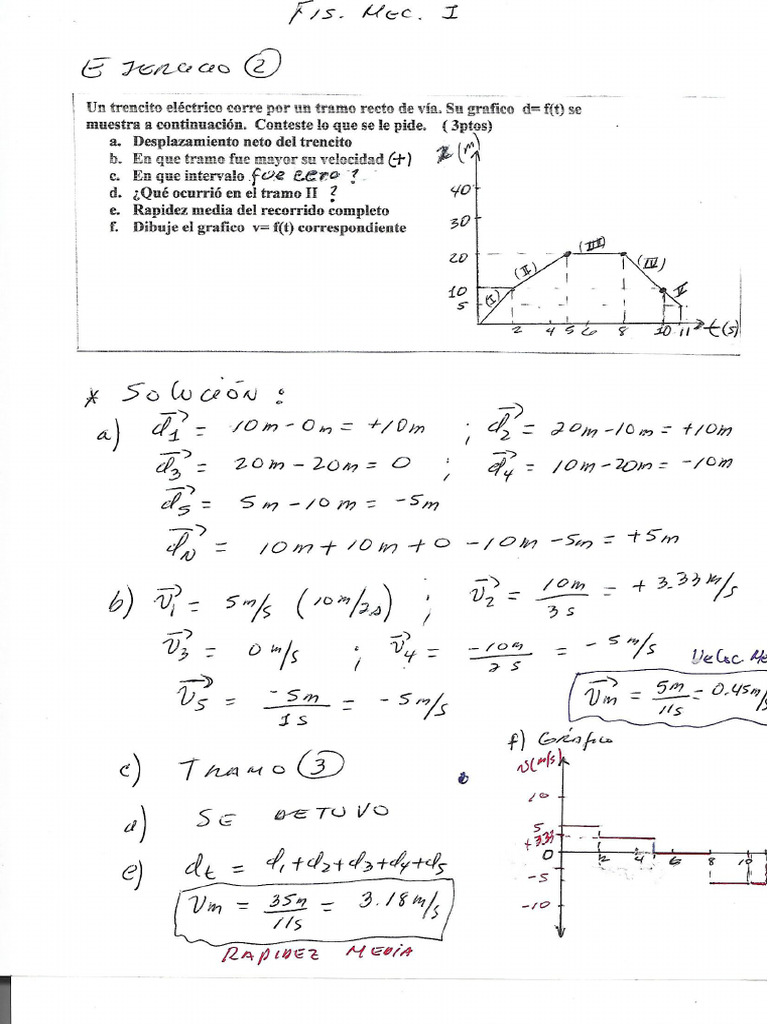 FIS. MEC. I
EJERCICIO ②
Un trencito eléctrico corre por un tramo recto de vía. Su grafico d= f(t) se
muestra a continuación. Conteste lo que se le pide. ( 3ptos)
a. Desplazamiento neto del trencito
b. En que tramo fue mayor su velocidad (+)
c. En que intervalo fue cero?
d. ¿Qué ocurrió en el tramo II ?
e. Rapidez media del recorrido completo
f. Dibuje el grafico v= f(t) correspondiente
(m)
40
30
20
10
5
(I)
(II)
(III)
(IV)
V
2 4 5 6 8 10 11 t(s)
* SOLUCIÓN :
a) d₁ = 10m - 0m = +10m ; d₂ = 20m - 10m = +10m
d₃ = 20m - 20m = 0 ; d₄ = 10m - 20m = -10m
d₅ = 5m - 10m = -5m
d_N = 10m + 10m + 0 - 10m - 5m = +5m
b) v₁ = 5m/s (10m/2s) ; v₂ = 10m/3s = +3.33m/s
v₃ = 0m/s ; v₄ = -10m/2s = -5m/s
v₅ = -5m/1s = -5m/s
Veloc. Me
Vm = 5m/11s = 0.45m/s
c) TRAMO ③
d) SE DETUVO
e) dt = d₁+d₂+d₃+d₄+d₅
Vm = 35m/11s = 3.18m/s
RAPIDEZ MEDIA
f) Gráfico
v(m/s)
10
5
+3.33
0
-5
-10
2 4 6 8 10